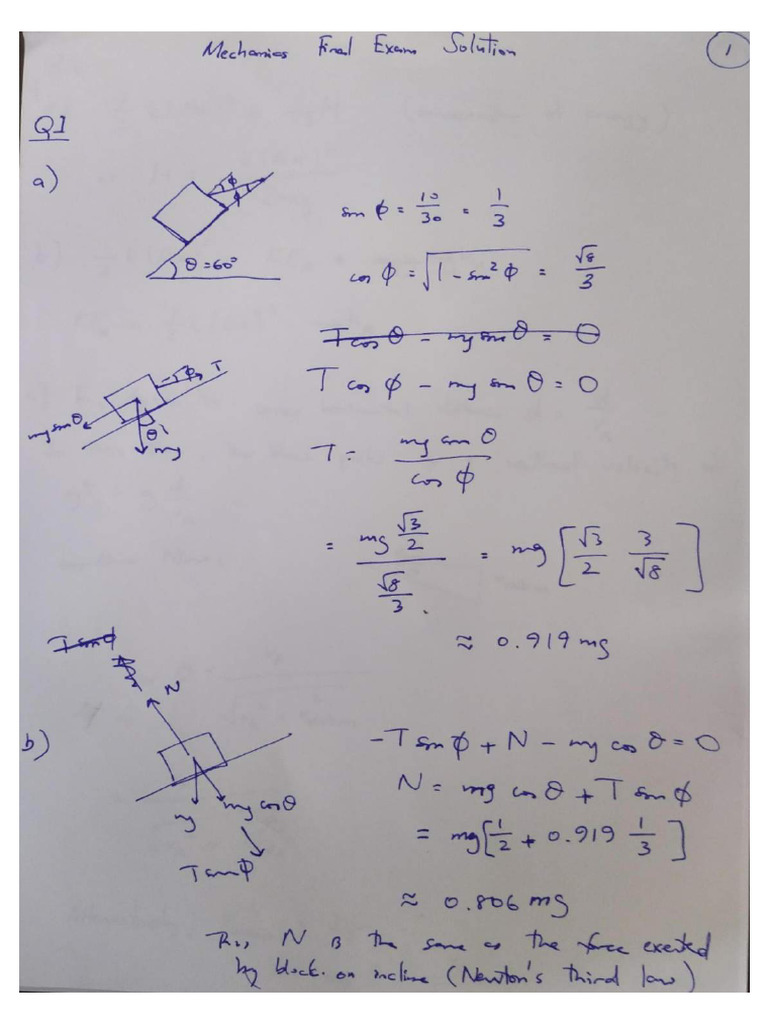 Mechanics Final Exam Solution 1
Q1
a)
ϕ
ϕ
θ = 60°
sin ϕ = 10/30 = 1/3
cos ϕ = √(1 - sin² ϕ) = √8/3
T cos θ - mg sin θ = 0
T cos ϕ - mg sin θ = 0
ϕ T
mg sin θ
θ
mg
T = mg sin θ / cos ϕ
= mg √3/2 / √8/3 = mg [ √3/2 3/√8 ]
≈ 0.919 mg
T sin ϕ
N
b)
-T sin ϕ + N - mg cos θ = 0
N = mg cos θ + T sin ϕ
mg
mg cos θ
= mg [ 1/2 + 0.919 1/3 ]
T sin ϕ
≈ 0.806 mg
This N is the same as the force exerted
by block on incline (Newton's third law)